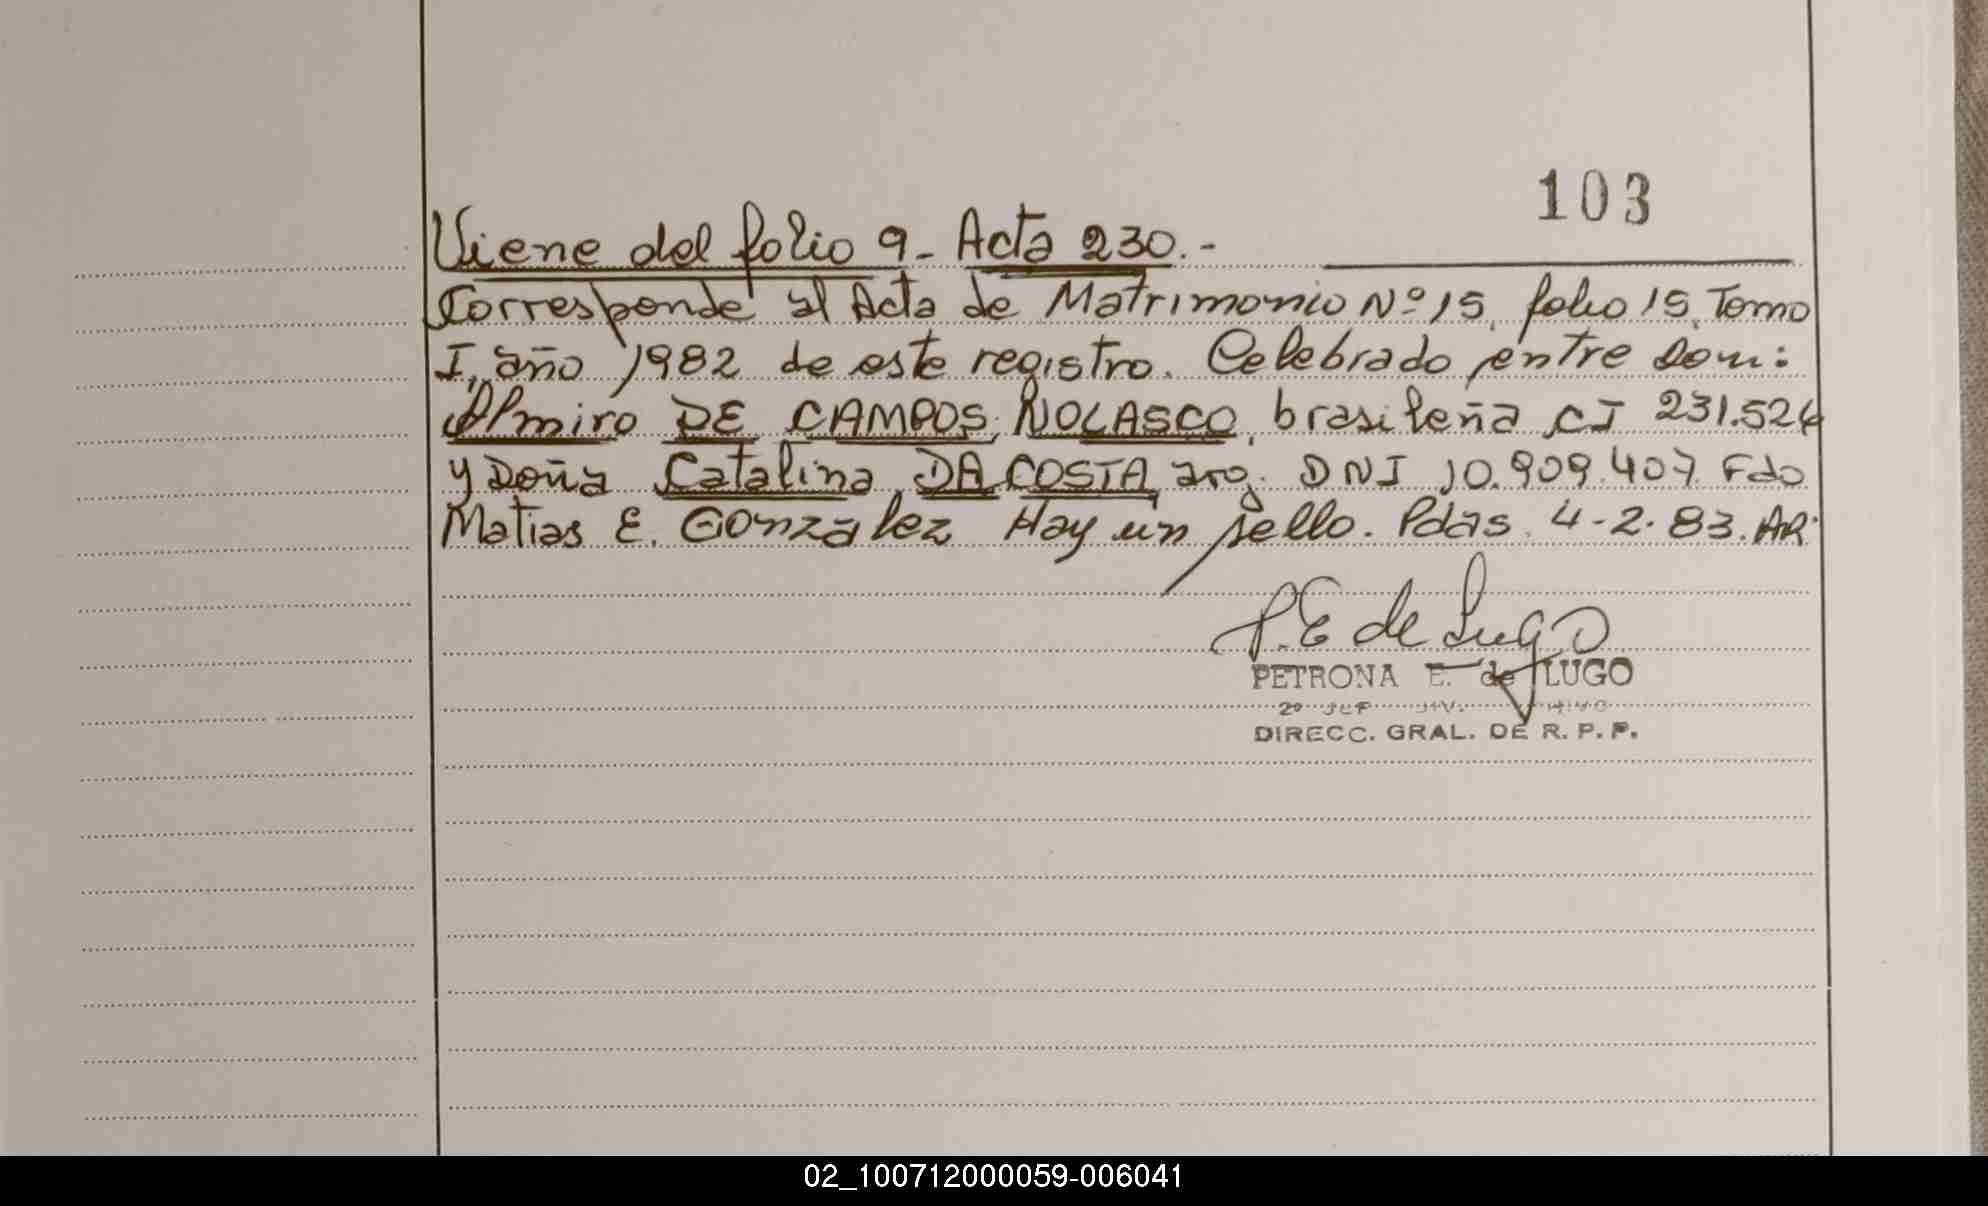 103
Viene del folio 9- Acta 230.-
Corresponde al Acta de Matrimonio Nº 15, folio 15, Tomo
I, año 1982 de este registro. Celebrado entre Don:
Almiro DE CAMPOS NOLASCO, brasileña CI 231.524
y Doña Catalina DA COSTA, arg. DNI 10.909.407. Fdo
Matias E. Gonzalez Hay un sello. Pdas. 4-2-83. AR.
P.E de Lugo
PETRONA E. de LUGO
2º
DIRECC. GRAL. DE R. P. P.
02_100712000059-006041